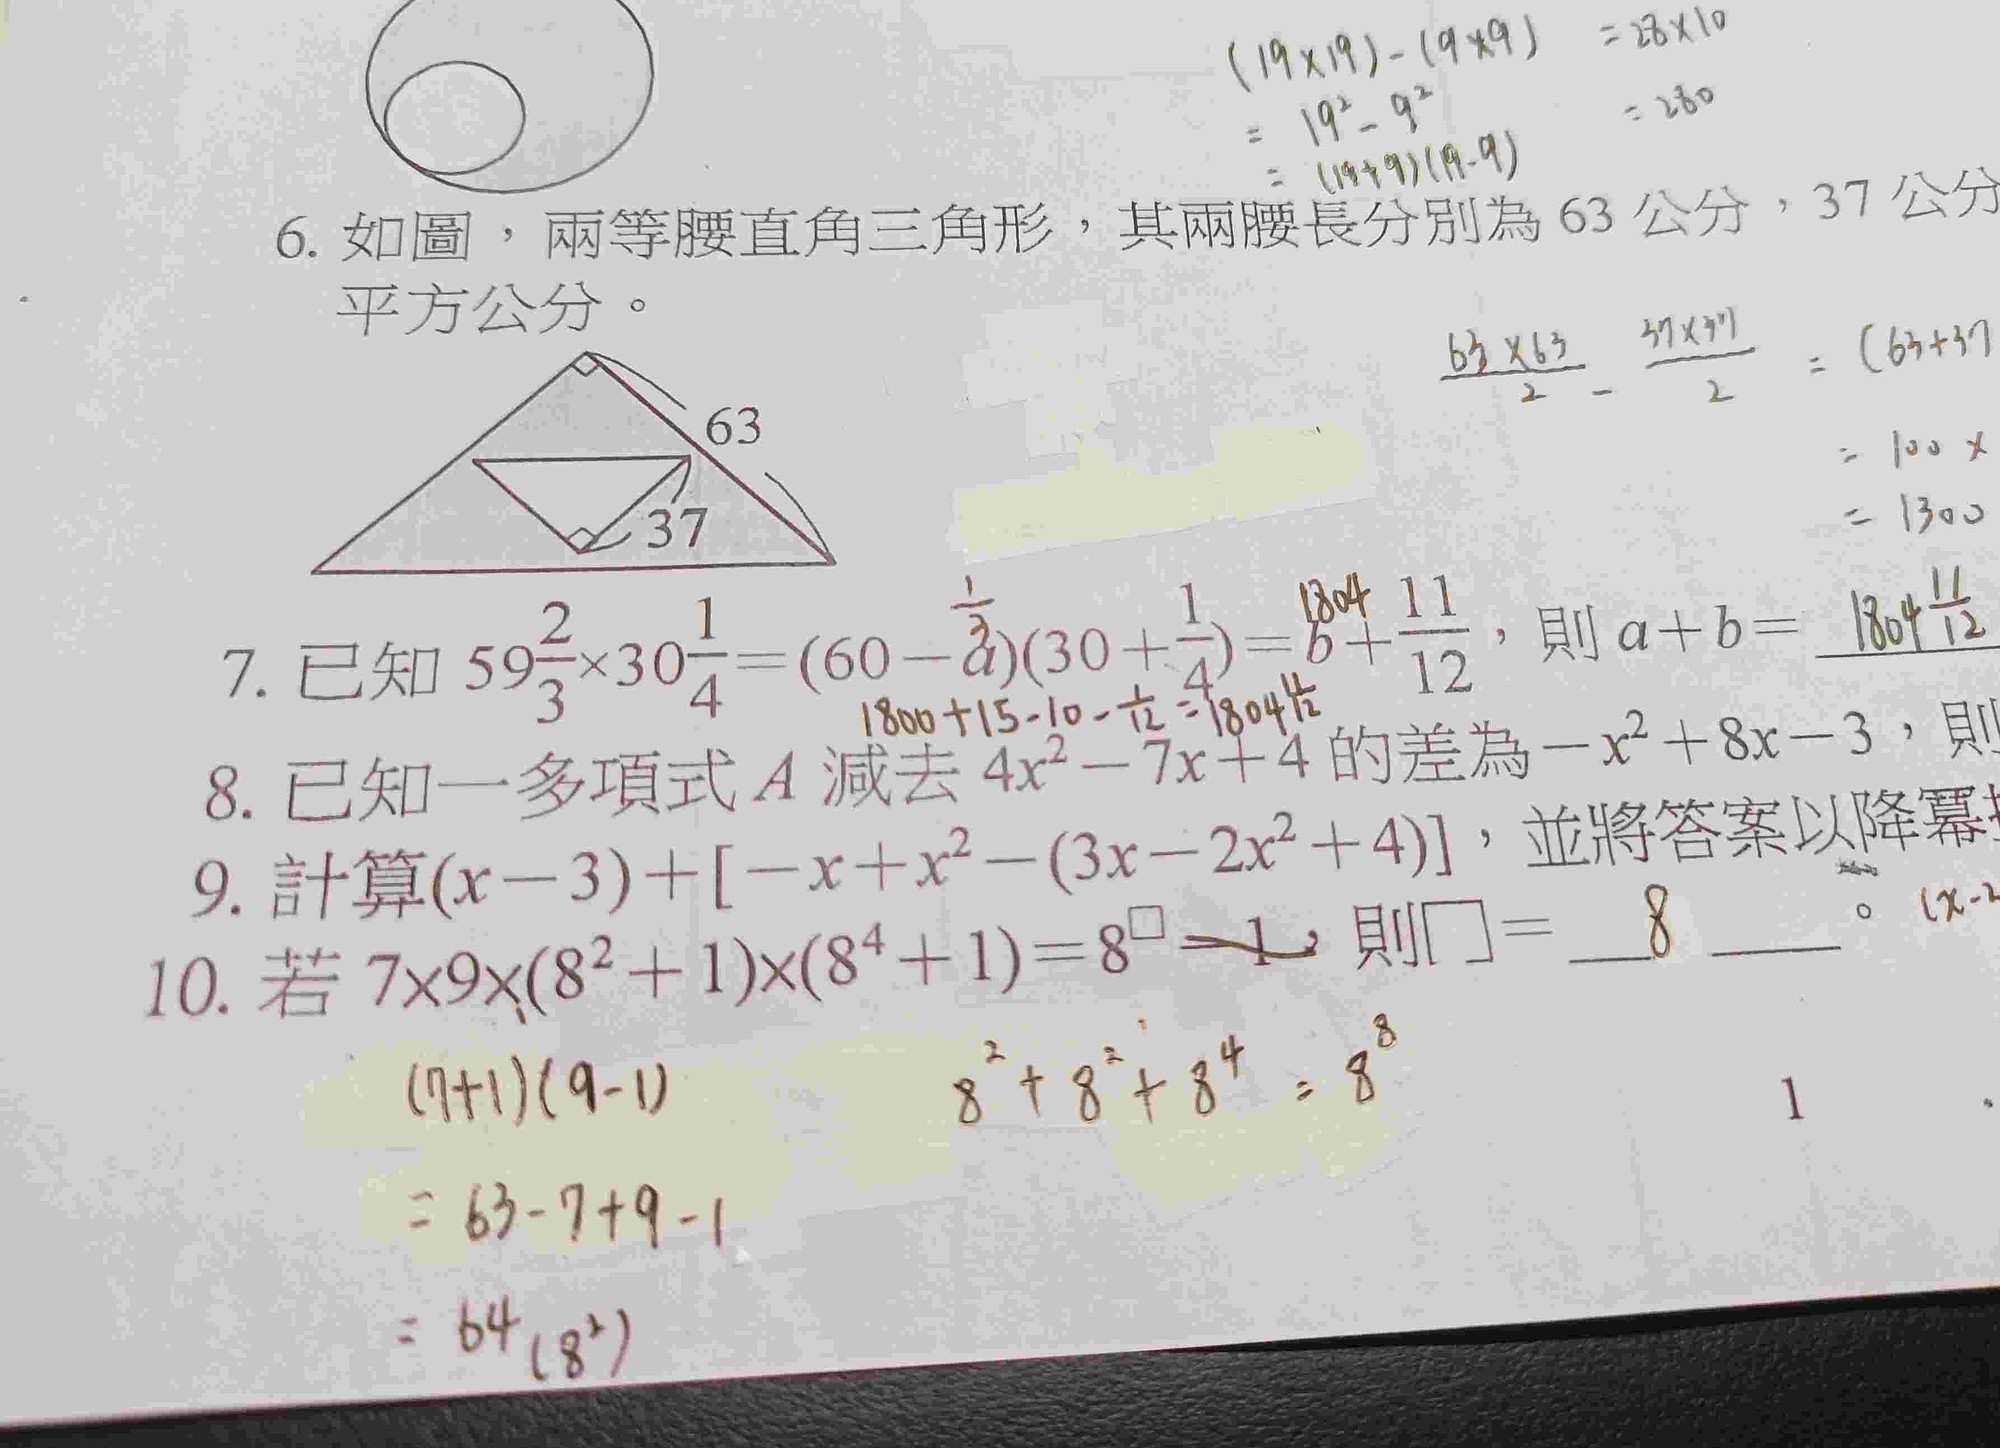 (19×19)-(9×9) =28×10
= 19²-9² =280
= (19+9)(19-9)
6. 如圖，兩等腰直角三角形，其兩腰長分別為 63 公分，37 公分
平方公分。
63×63/2 - 37×37/2 = (63+37
= 100 ×
= 1300
63
37
1/3 1804
7. 已知 59 2/3×30 1/4=(60-a)(30+1/4)=b+11/12，則 a+b= 1804 11/12
1800+15-10-1/12=1804 11/12
8. 已知一多項式 A 減去 4x²-7x+4 的差為-x²+8x-3，則
9. 計算(x-3)+[-x+x²-(3x-2x²+4)]，並將答案以降冪
(x-2
10. 若 7×9×(8²+1)×(8⁴+1)=8^□-1，則□= 8 。
(7+1)(9-1) 8²+8²+8⁴ = 8⁸
1
= 63-7+9-1
= 64 (8²)